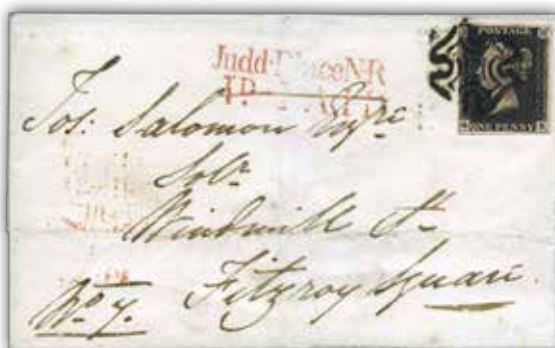 POSTAGE
Judd Place NR
1P PAID
ONE PENNY
Jos: Salomon Esqre
Solr
Windmill St
Fitzroy Square
No 7.